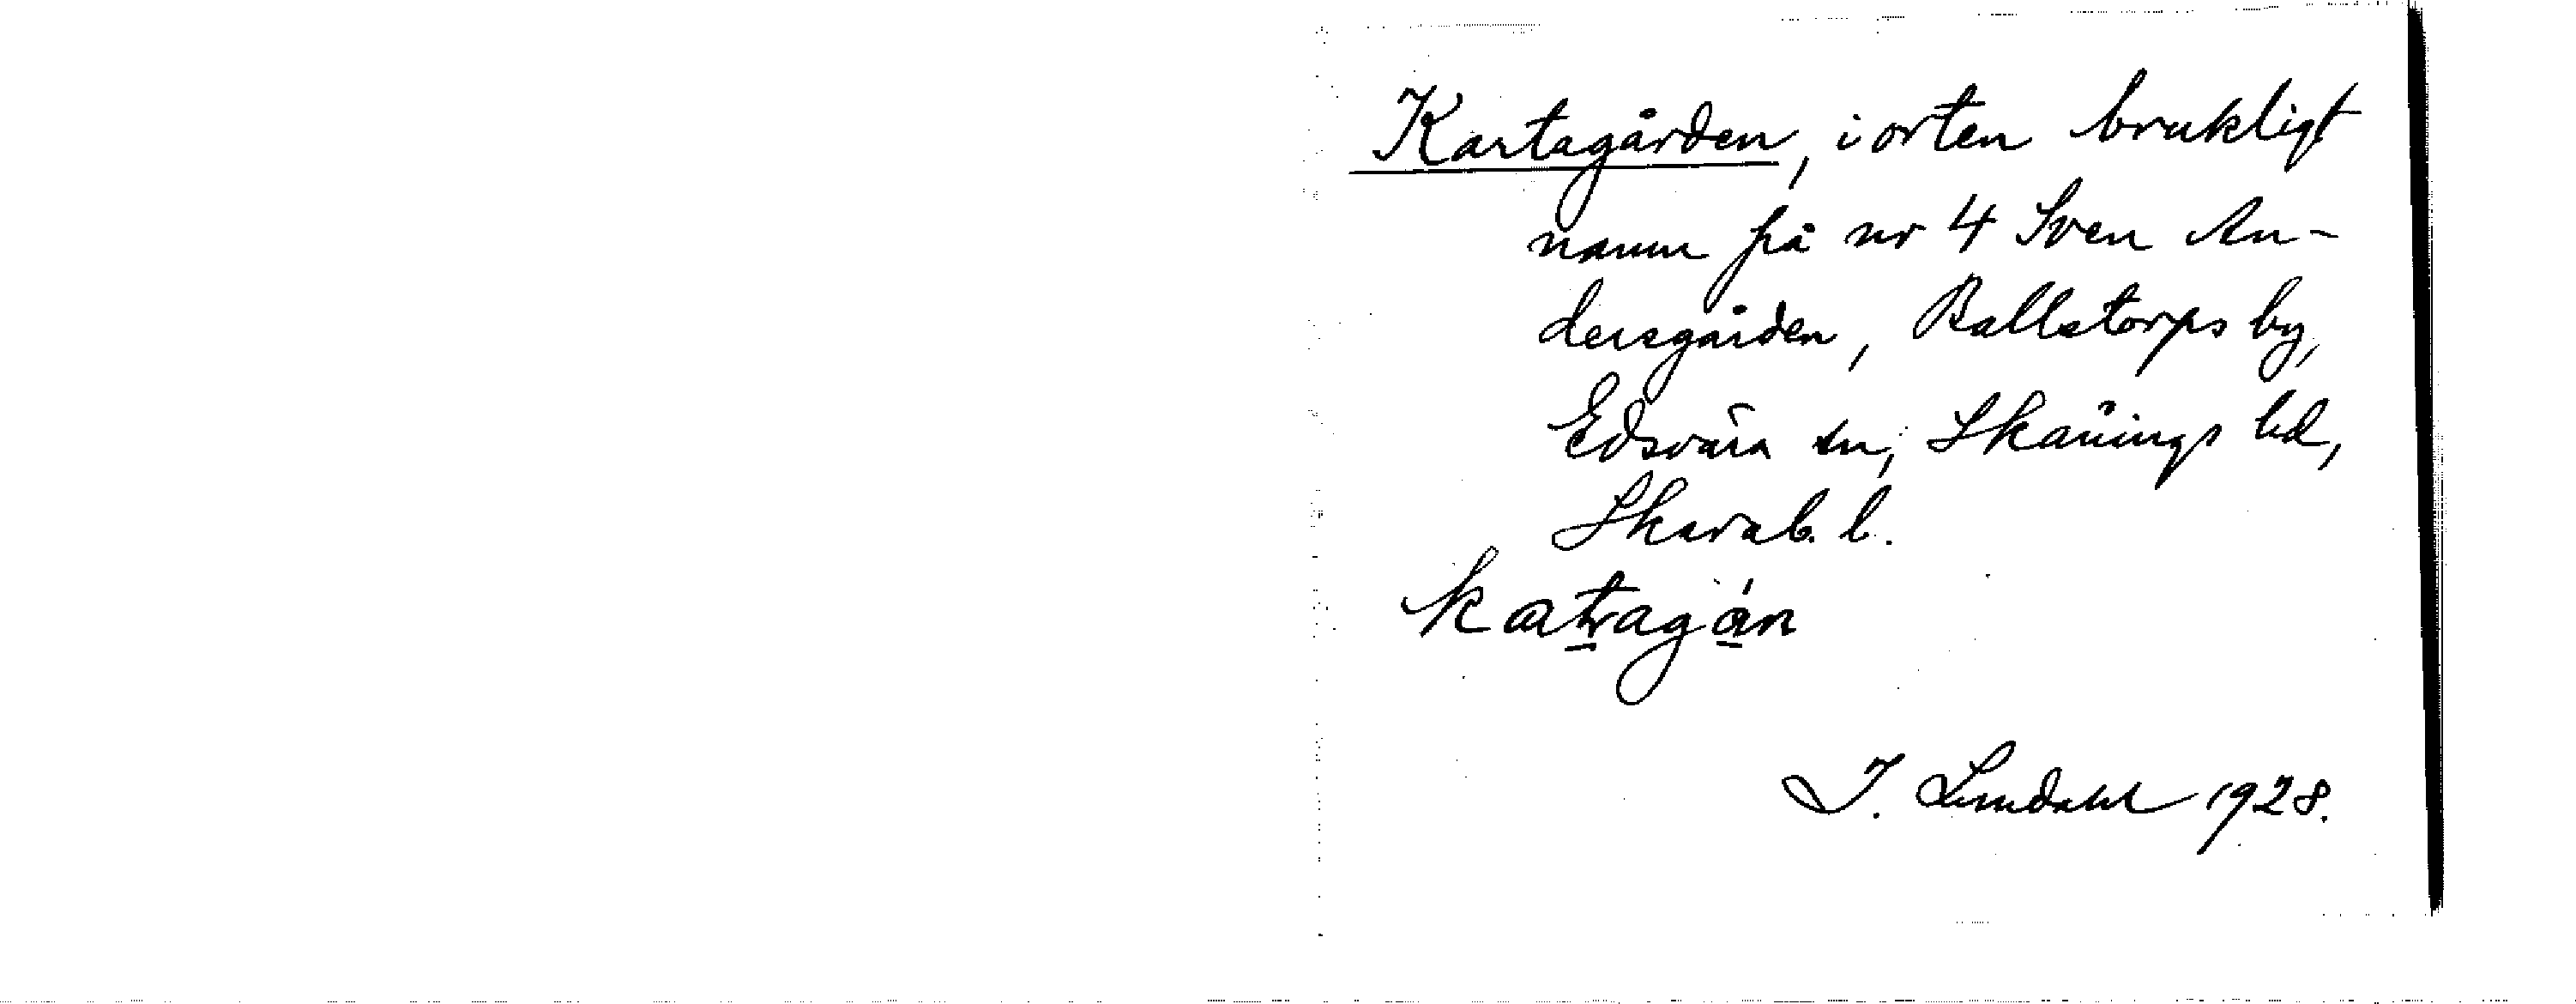 Kartagården, i orten brukligt
namn på nr 4 Sven An-
dersgården, Ballstorps by,
Edsvära sn, Skånings hd,
Skarab. l.
katragán
J. Lindahl 1928.